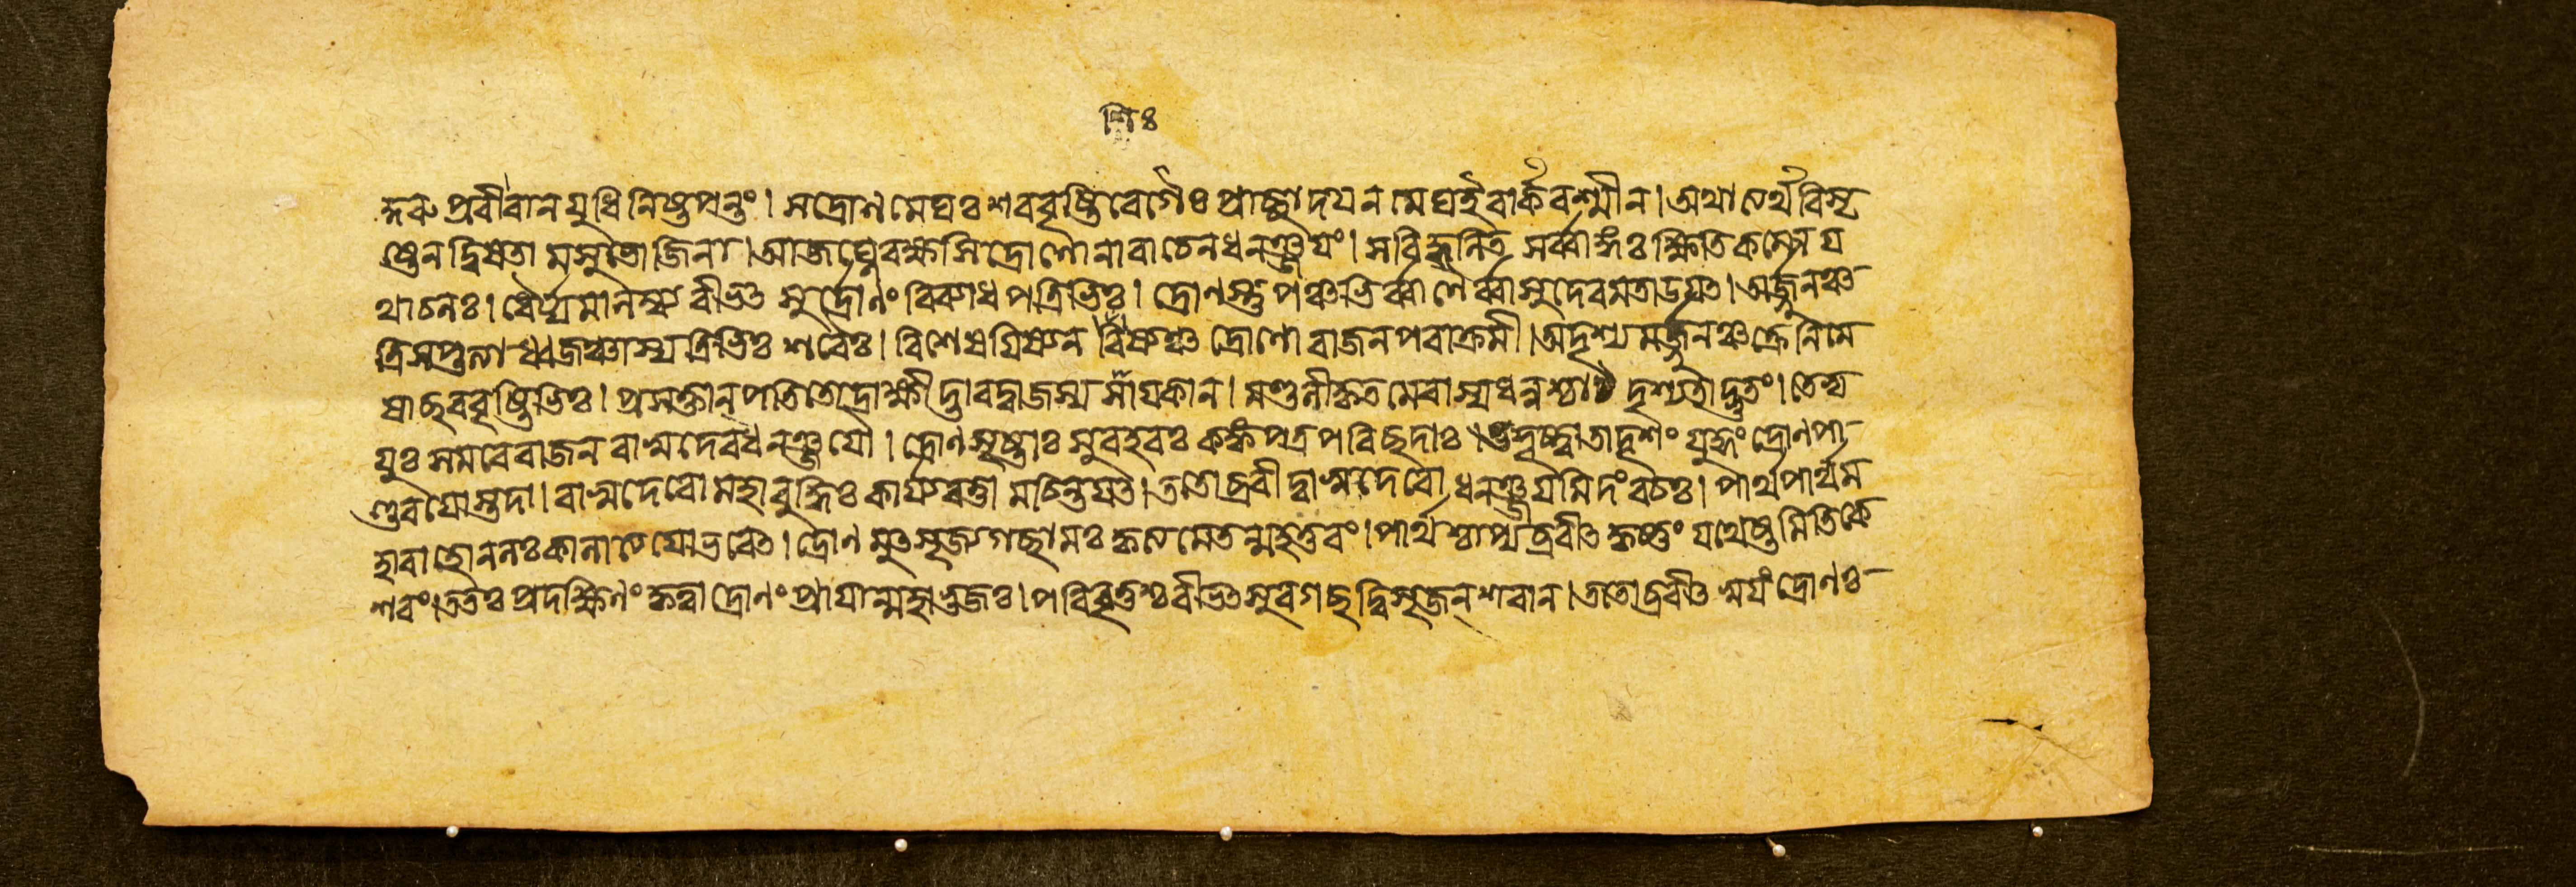 শিঃ
ঙ্গৰু প্ৰবীৰান যুধি নিষ্টপন্তং। সদ্রোণ মেঘঃ শৰবৃষ্টিবেগৈঃ প্ৰাচ্ছাদয়ন মেঘইবাৰ্কৰশ্মীন। অথাত্যৰ্থবিসৃ
ষ্টেন দ্বিষতা মসুভোজিনা। আজঘ্নেবক্ষসি দ্রোণো নাৰাচেন ধনঞ্জয়ং। সবিহ্বলিত সৰ্ব্বাঙ্গঃ ক্ষিতিকম্পে য
থাচলঃ। ধৈৰ্য্যমালম্ব্য বীভৎসুৰ্দ্রোণং বিব্যাধ পত্ৰিভিঃ। দ্রোণস্তু পঞ্চভিৰ্ব্বাণৈৰ্ব্বাসুদেবমতাড়য়ত। অৰ্জ্জুনঞ্চ
ত্ৰিসপ্তত্যা ধ্বজঞ্চাস্য ত্ৰিভিঃ শৰৈঃ। বিশেষয়িষ্যন শিষ্যঞ্চ দ্রোণো ৰাজন পৰাক্ৰমী। অদৃশ্য মৰ্জ্জুনঞ্চক্ৰে নিমে
ষাছৰবৃষ্টিভিঃ। প্ৰসক্তান্ পতিতোদ্ৰাক্ষী দ্ভাৰদ্বাজস্য সায়কান। মণ্ডলীকৃত মেবাস্য ধনুশ্চা দৃশ্যতাদ্ভুতং। তেভ্য
যুঃ সমৰেৰাজন বাসুদেবধনঞ্জয়ৌ। দ্রোণসৃষ্টাঃ সুবহবঃ কঙ্কপত্ৰ পৰিছদাঃ। তদ্দৃষ্ট্বা তাদৃশং যুদ্ধং দ্রোণপা
ণ্ডবযোস্তদা। বাসুদেবো মহাবুদ্ধিঃ কাৰ্য্যবত্তা মচিন্তয়ত। ততোব্ৰবী দ্বাসুদেবো ধনঞ্জয়মিদং বচঃ। পাৰ্থপাৰ্থম
হাবাহোননঃ কালাত্যযোভবেৎ। দ্রোণ মুৎসৃজ্য গছামঃ কৃত্য মেতন্মহত্তৰং। পাৰ্থশ্চাপ্যব্ৰবীৎ কৃষ্ণং যথেষ্টমিতিকে
শবং। ততঃ প্ৰদক্ষিণং কৃত্বা দ্রোণং প্ৰাযান্মহাভুজঃ। পৰিবৃত্তশ্চ বীভৎসুৰগছদ্বিসৃজন্ শৰান। ততোব্ৰবীৎ স্ময়ং দ্রোণঃ